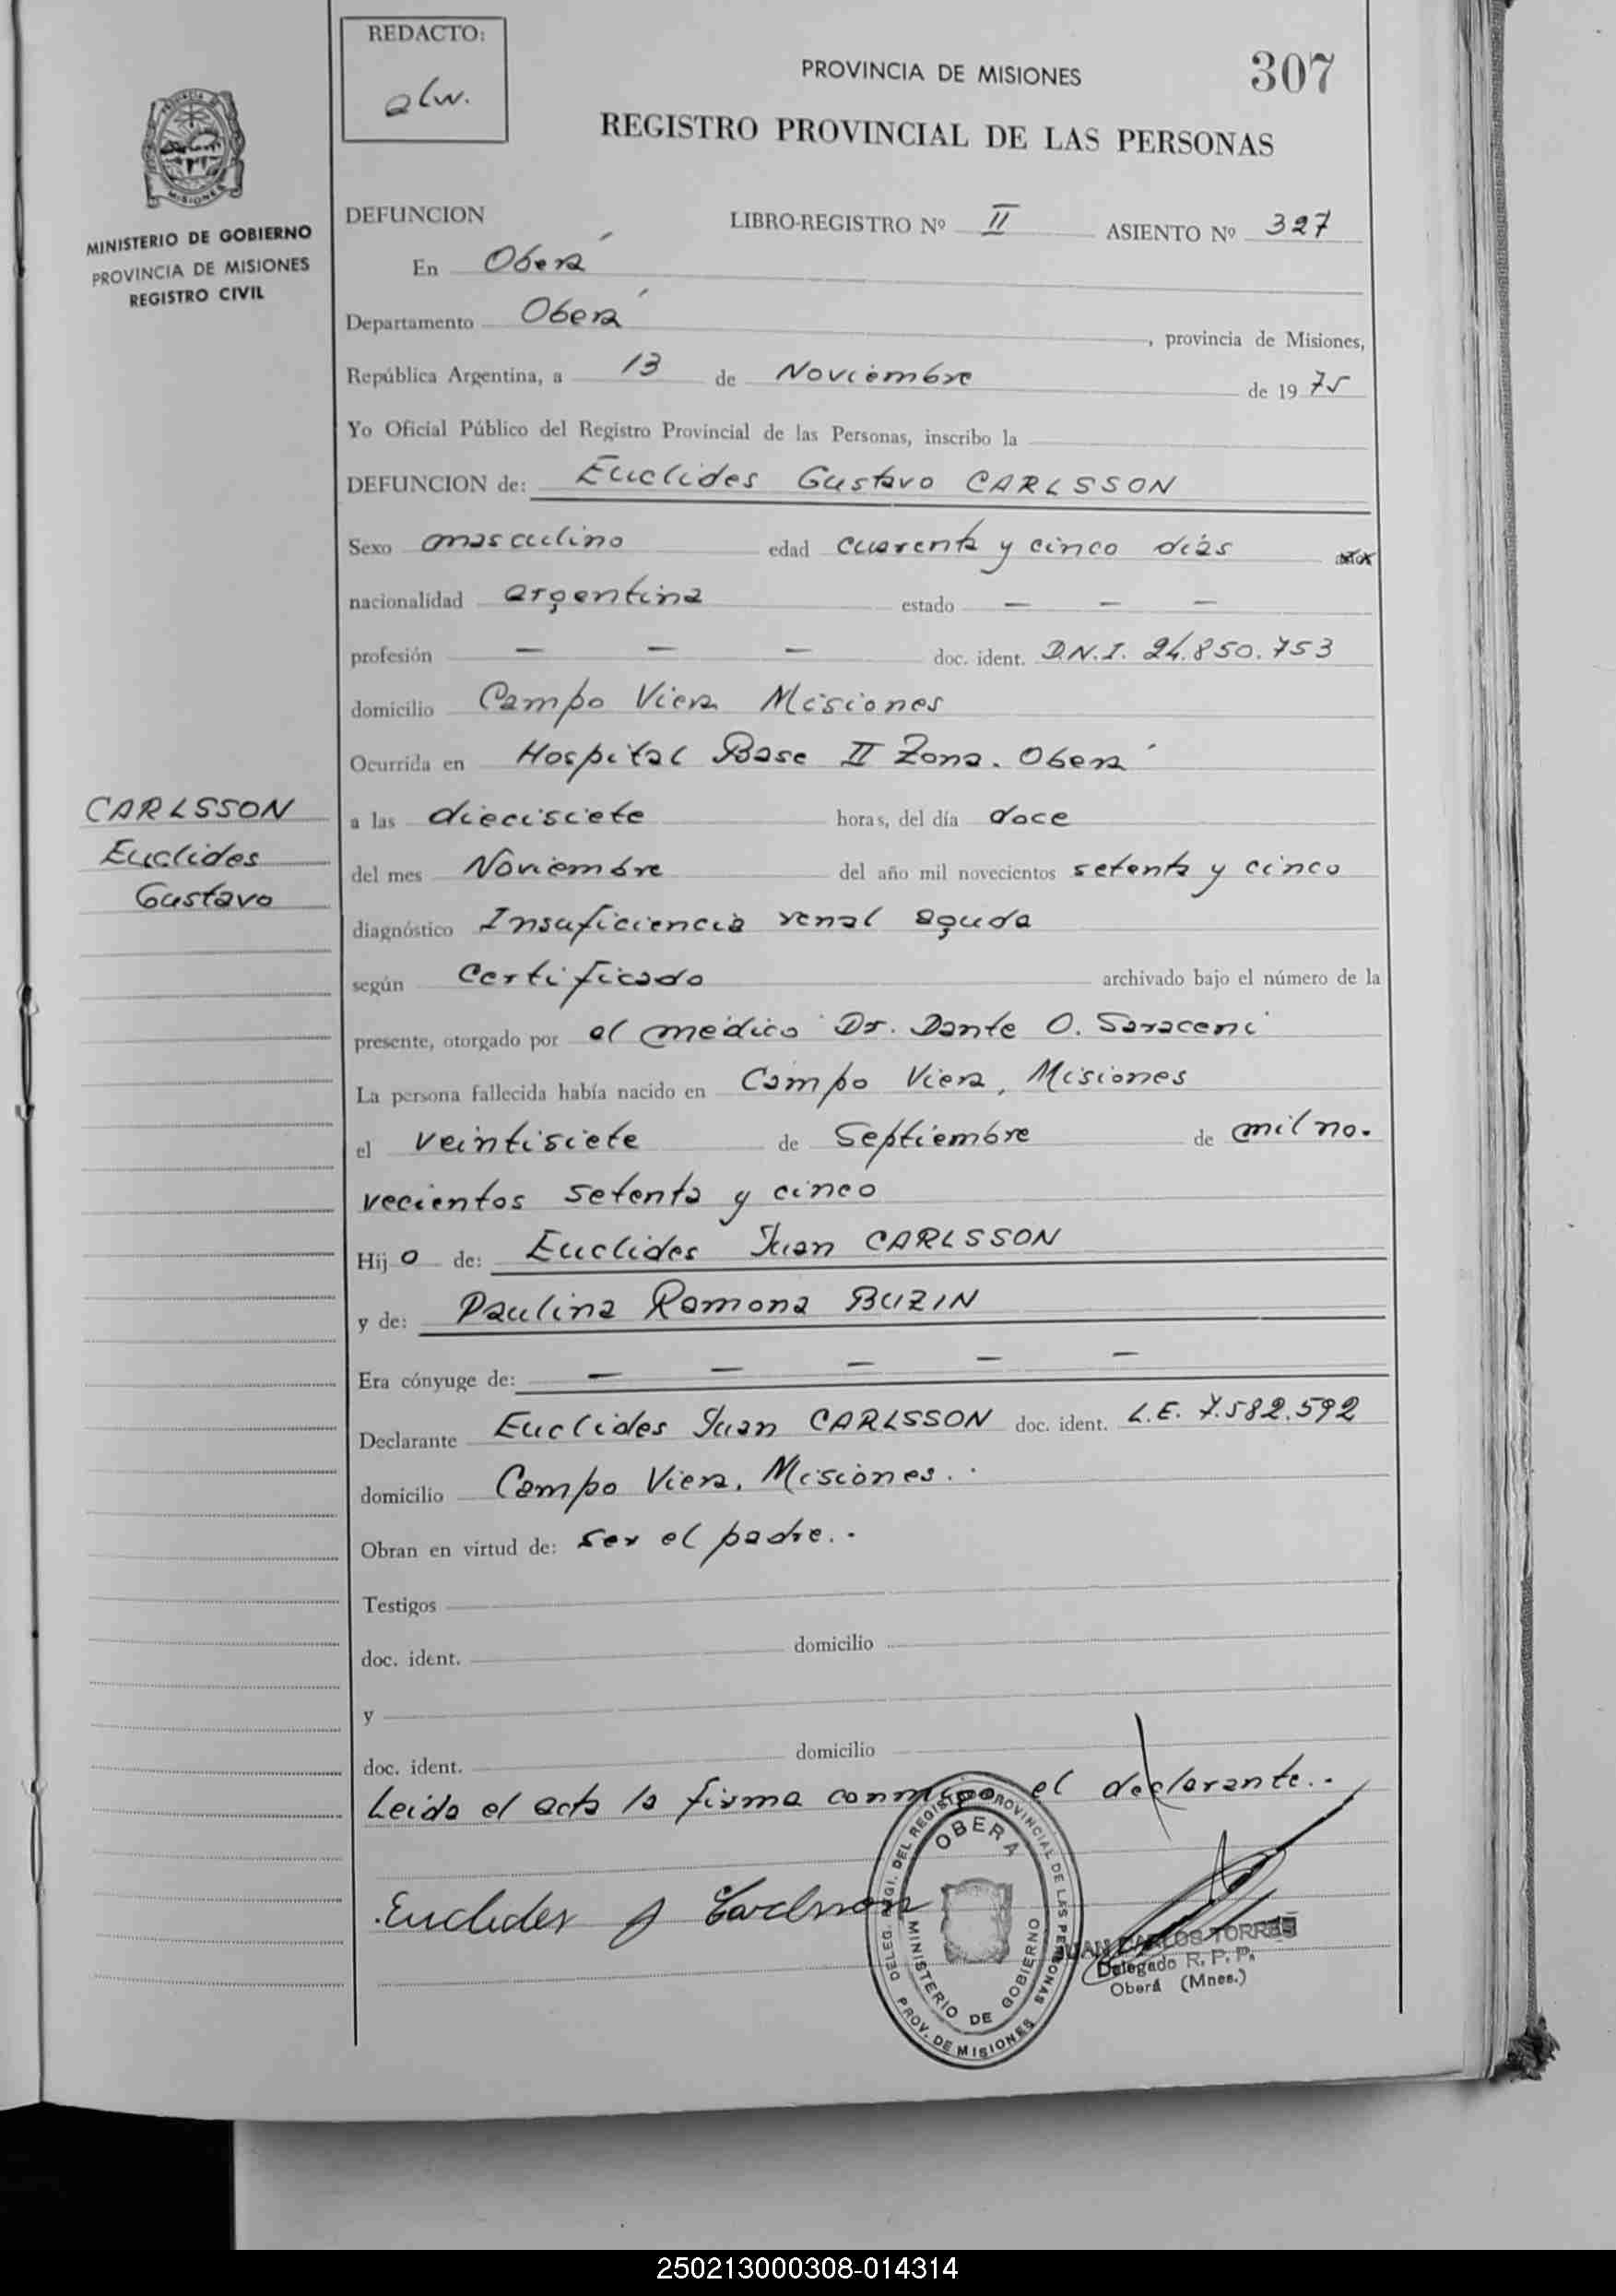 REDACTO:
alw.
PROVINCIA DE MISIONES
307
REGISTRO PROVINCIAL DE LAS PERSONAS
MISIONES
MINISTERIO DE GOBIERNO
PROVINCIA DE MISIONES
REGISTRO CIVIL
DEFUNCION LIBRO-REGISTRO Nº II ASIENTO Nº 327
En Oberá
Departamento Oberá, provincia de Misiones,
República Argentina, a 13 de Noviembre de 1975
Yo Oficial Público del Registro Provincial de las Personas, inscribo la
DEFUNCION de: Euclides Gustavo CARLSSON
Sexo masculino edad cuarenta y cinco días
nacionalidad argentina estado — — —
profesión — — — doc. ident. D.N.I. 24.850.753
domicilio Campo Viera Misiones
Ocurrida en Hospital Base II Zona. Oberá
CARLSSON
Euclides
Gustavo
a las diecisiete horas, del día doce
del mes Noviembre del año mil novecientos setenta y cinco
diagnóstico Insuficiencia renal aguda
según Certificado archivado bajo el número de la
presente, otorgado por el médico Dr. Dante O. Saraceni
La persona fallecida había nacido en Campo Viera, Misiones
el veintisiete de Septiembre de mil no.
vecientos setenta y cinco
Hijo de: Euclides Juan CARLSSON
y de: Paulina Ramona BUZIN
Era cónyuge de: — — — — —
Declarante Euclides Juan CARLSSON doc. ident. L.E. 7.582.592
domicilio Campo Viera. Misiones..
Obran en virtud de: ser el padre..
Testigos
doc. ident. domicilio
y
doc. ident. domicilio
Leida el acta la firma conmigo el declarante..
Euclides J Carlsson
DELEG. REGI. DEL REGISTRO PROVINCIAL DE LAS PERSONAS
OBERA
MINISTERIO DE GOBIERNO
PROV. DE MISIONES
JUAN CARLOS TORRES
Delegado R. P. P.
Oberá (Mnes.)
250213000308-014314